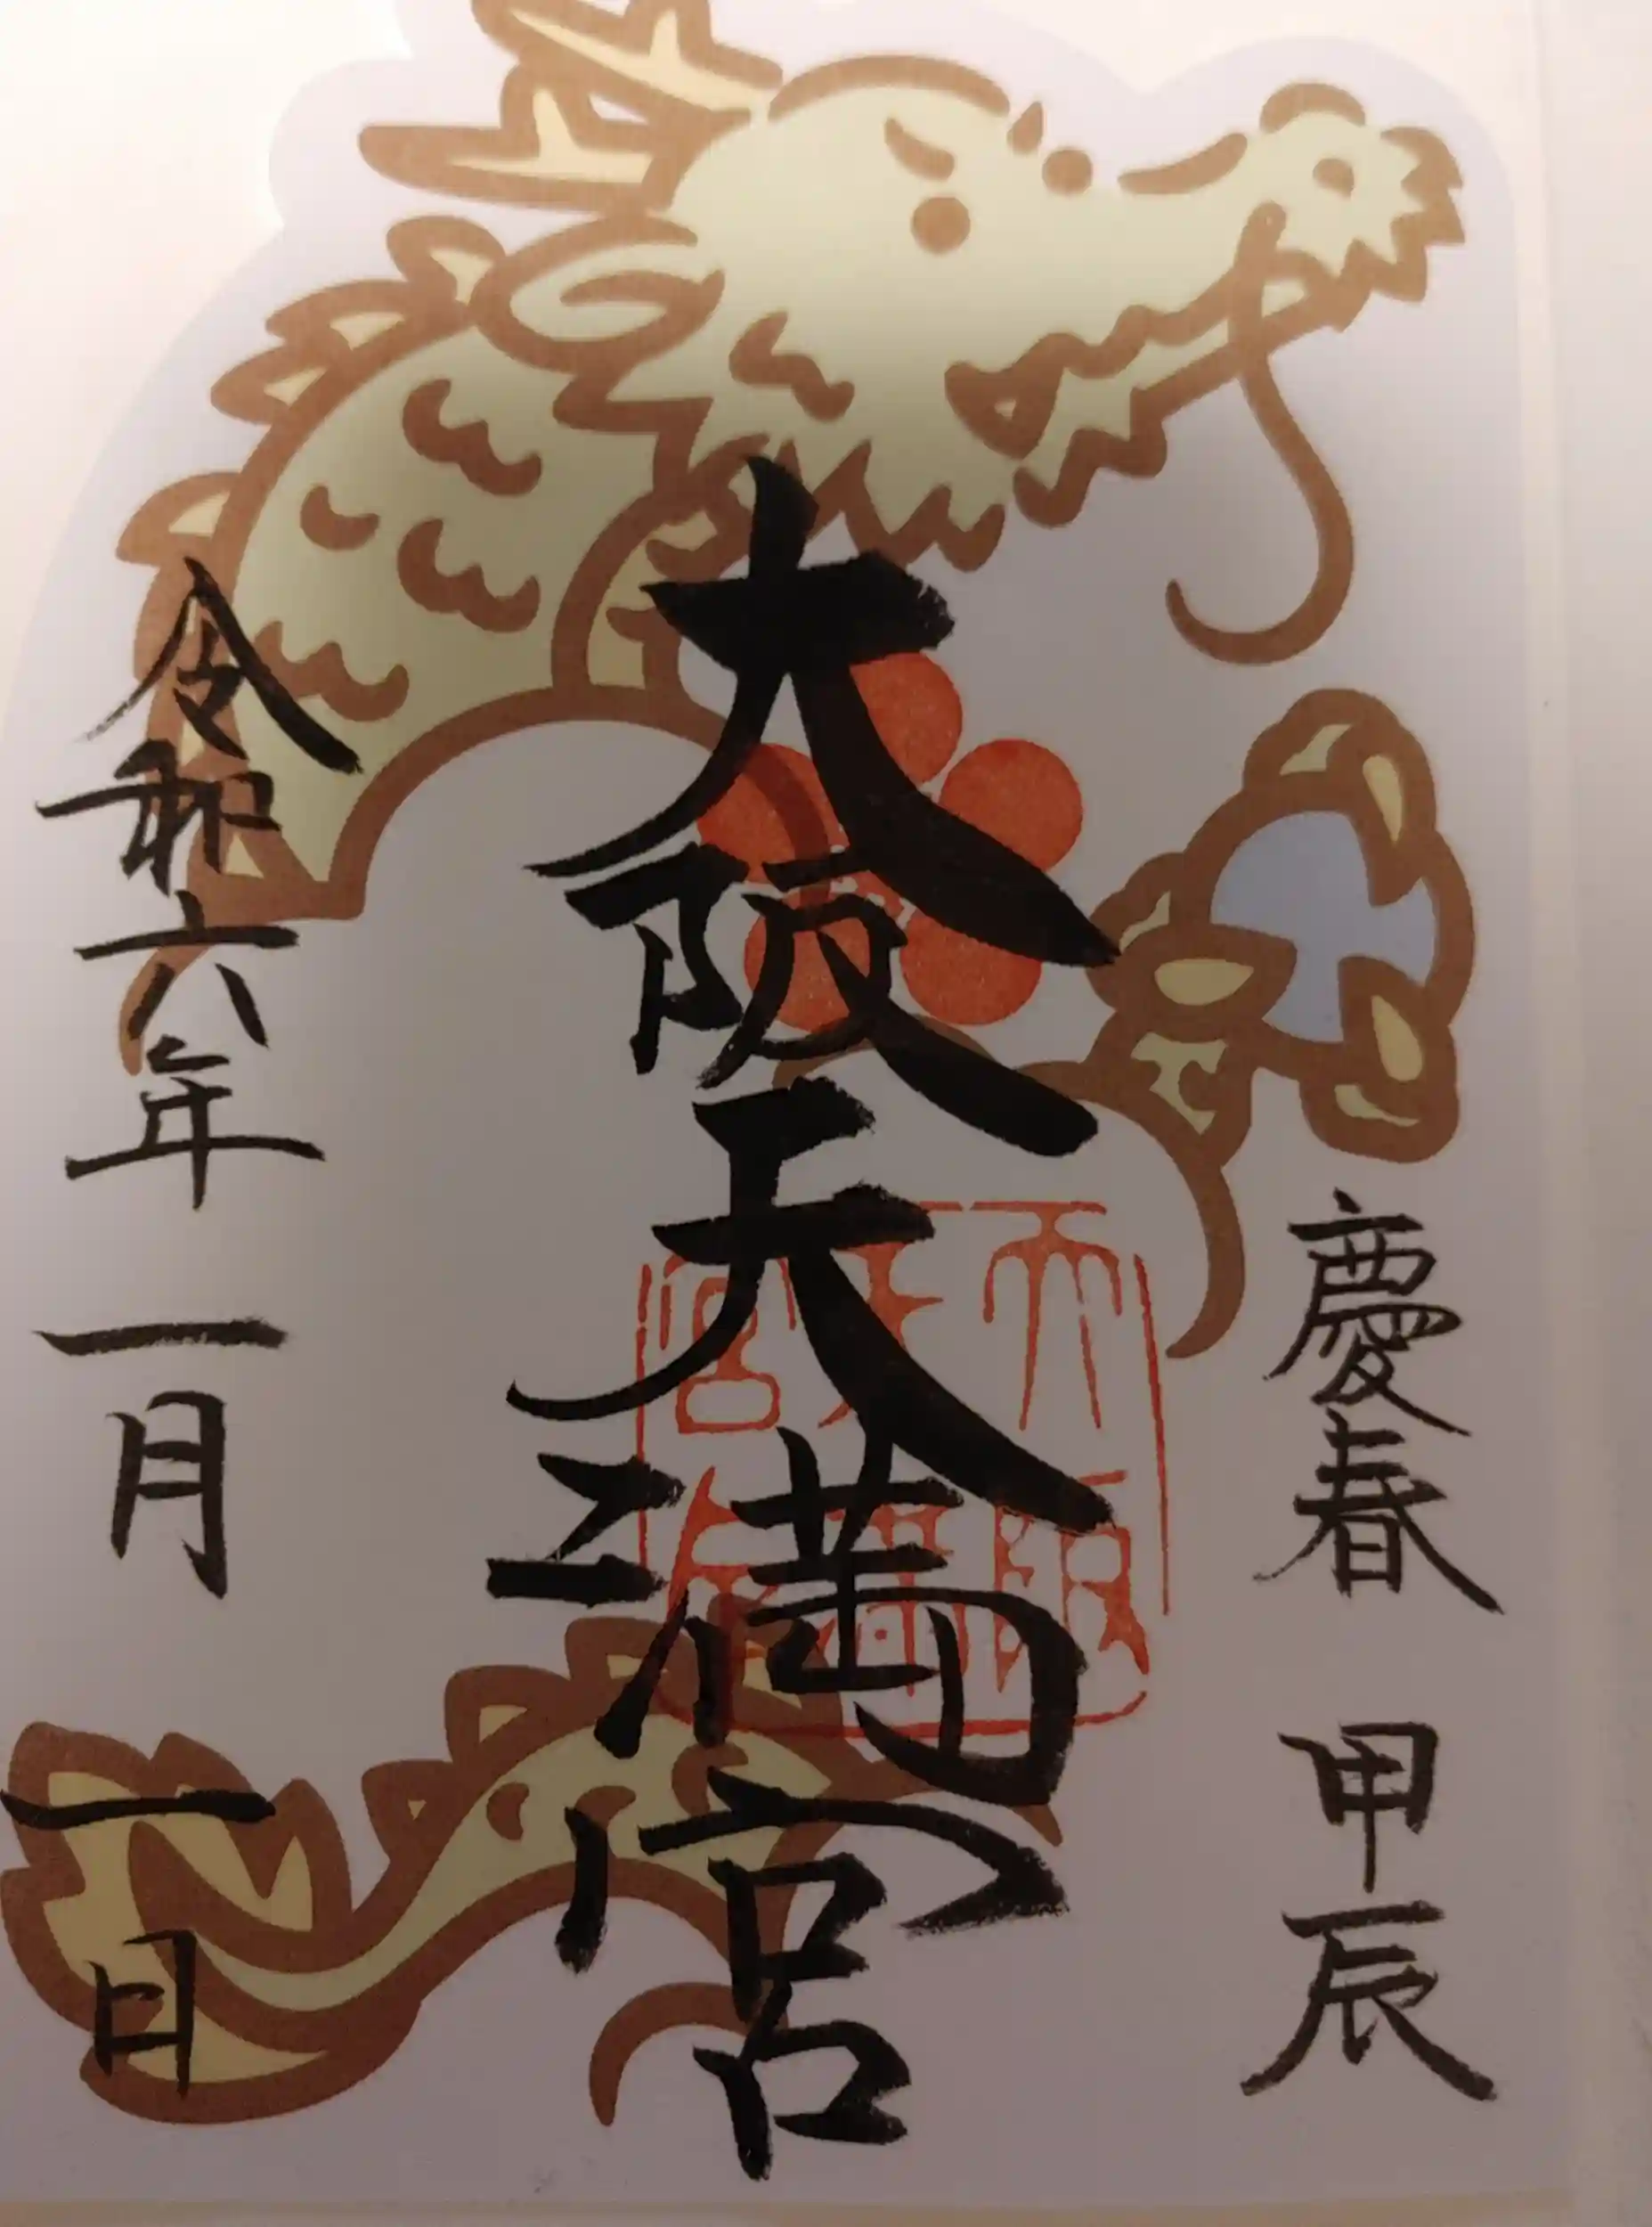 慶春 甲辰
大阪天満宮
令和六年一月一日
大阪天満宮印